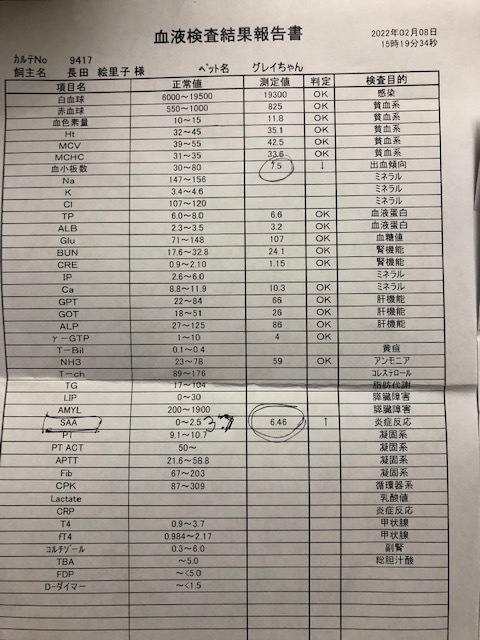 血液検査結果報告書
2022年02月08日
15時19分34秒
カルテNo 9417
飼主名 長田 絵里子 様 ペット名 グレイちゃん
項目名 正常値 測定値 判定 検査目的
白血球 6000～19500 19300 OK 感染
赤血球 550～1000 825 OK 貧血系
血色素量 10～15 11.8 OK 貧血系
Ht 32～45 35.1 OK 貧血系
MCV 39～55 42.5 OK 貧血系
MCHC 31～35 33.6 OK 貧血系
血小板数 30～80 7.5 ↓ 出血傾向
Na 147～156 ミネラル
K 3.4～4.6 ミネラル
Cl 107～120 ミネラル
TP 6.0～8.0 6.6 OK 血液蛋白
ALB 2.3～3.5 3.2 OK 血液蛋白
Glu 71～148 107 OK 血糖値
BUN 17.6～32.8 24.1 OK 腎機能
CRE 0.9～2.10 1.15 OK 腎機能
IP 2.6～6.0 ミネラル
Ca 8.8～11.9 10.3 OK ミネラル
GPT 22～84 66 OK 肝機能
GOT 18～51 26 OK 肝機能
ALP 27～125 86 OK 肝機能
γ－GTP 1～10 4 OK
T－Bil 0.1～0.4 黄疸
NH3 23～78 59 OK アンモニア
T－ch 89～176 コレステロール
TG 17～104 脂肪代謝
LIP 0～30 膵臓障害
AMYL 200～1900 膵臓障害
SAA 0～2.5 6.46 ↑ 炎症反応
PT 9.1～10.7 凝固系
PT ACT 50～ 凝固系
APTT 21.6～58.8 凝固系
Fib 67～203 凝固系
CPK 87～309 循環器系
Lactate 乳酸値
CRP 炎症反応
T4 0.9～3.7 甲状腺
fT4 0.984～2.17 甲状腺
コルチゾール 0.3～6.0 副腎
TBA ～5.0 総胆汁酸
FDP ～<5.0
D－ダイマー ～<1.5